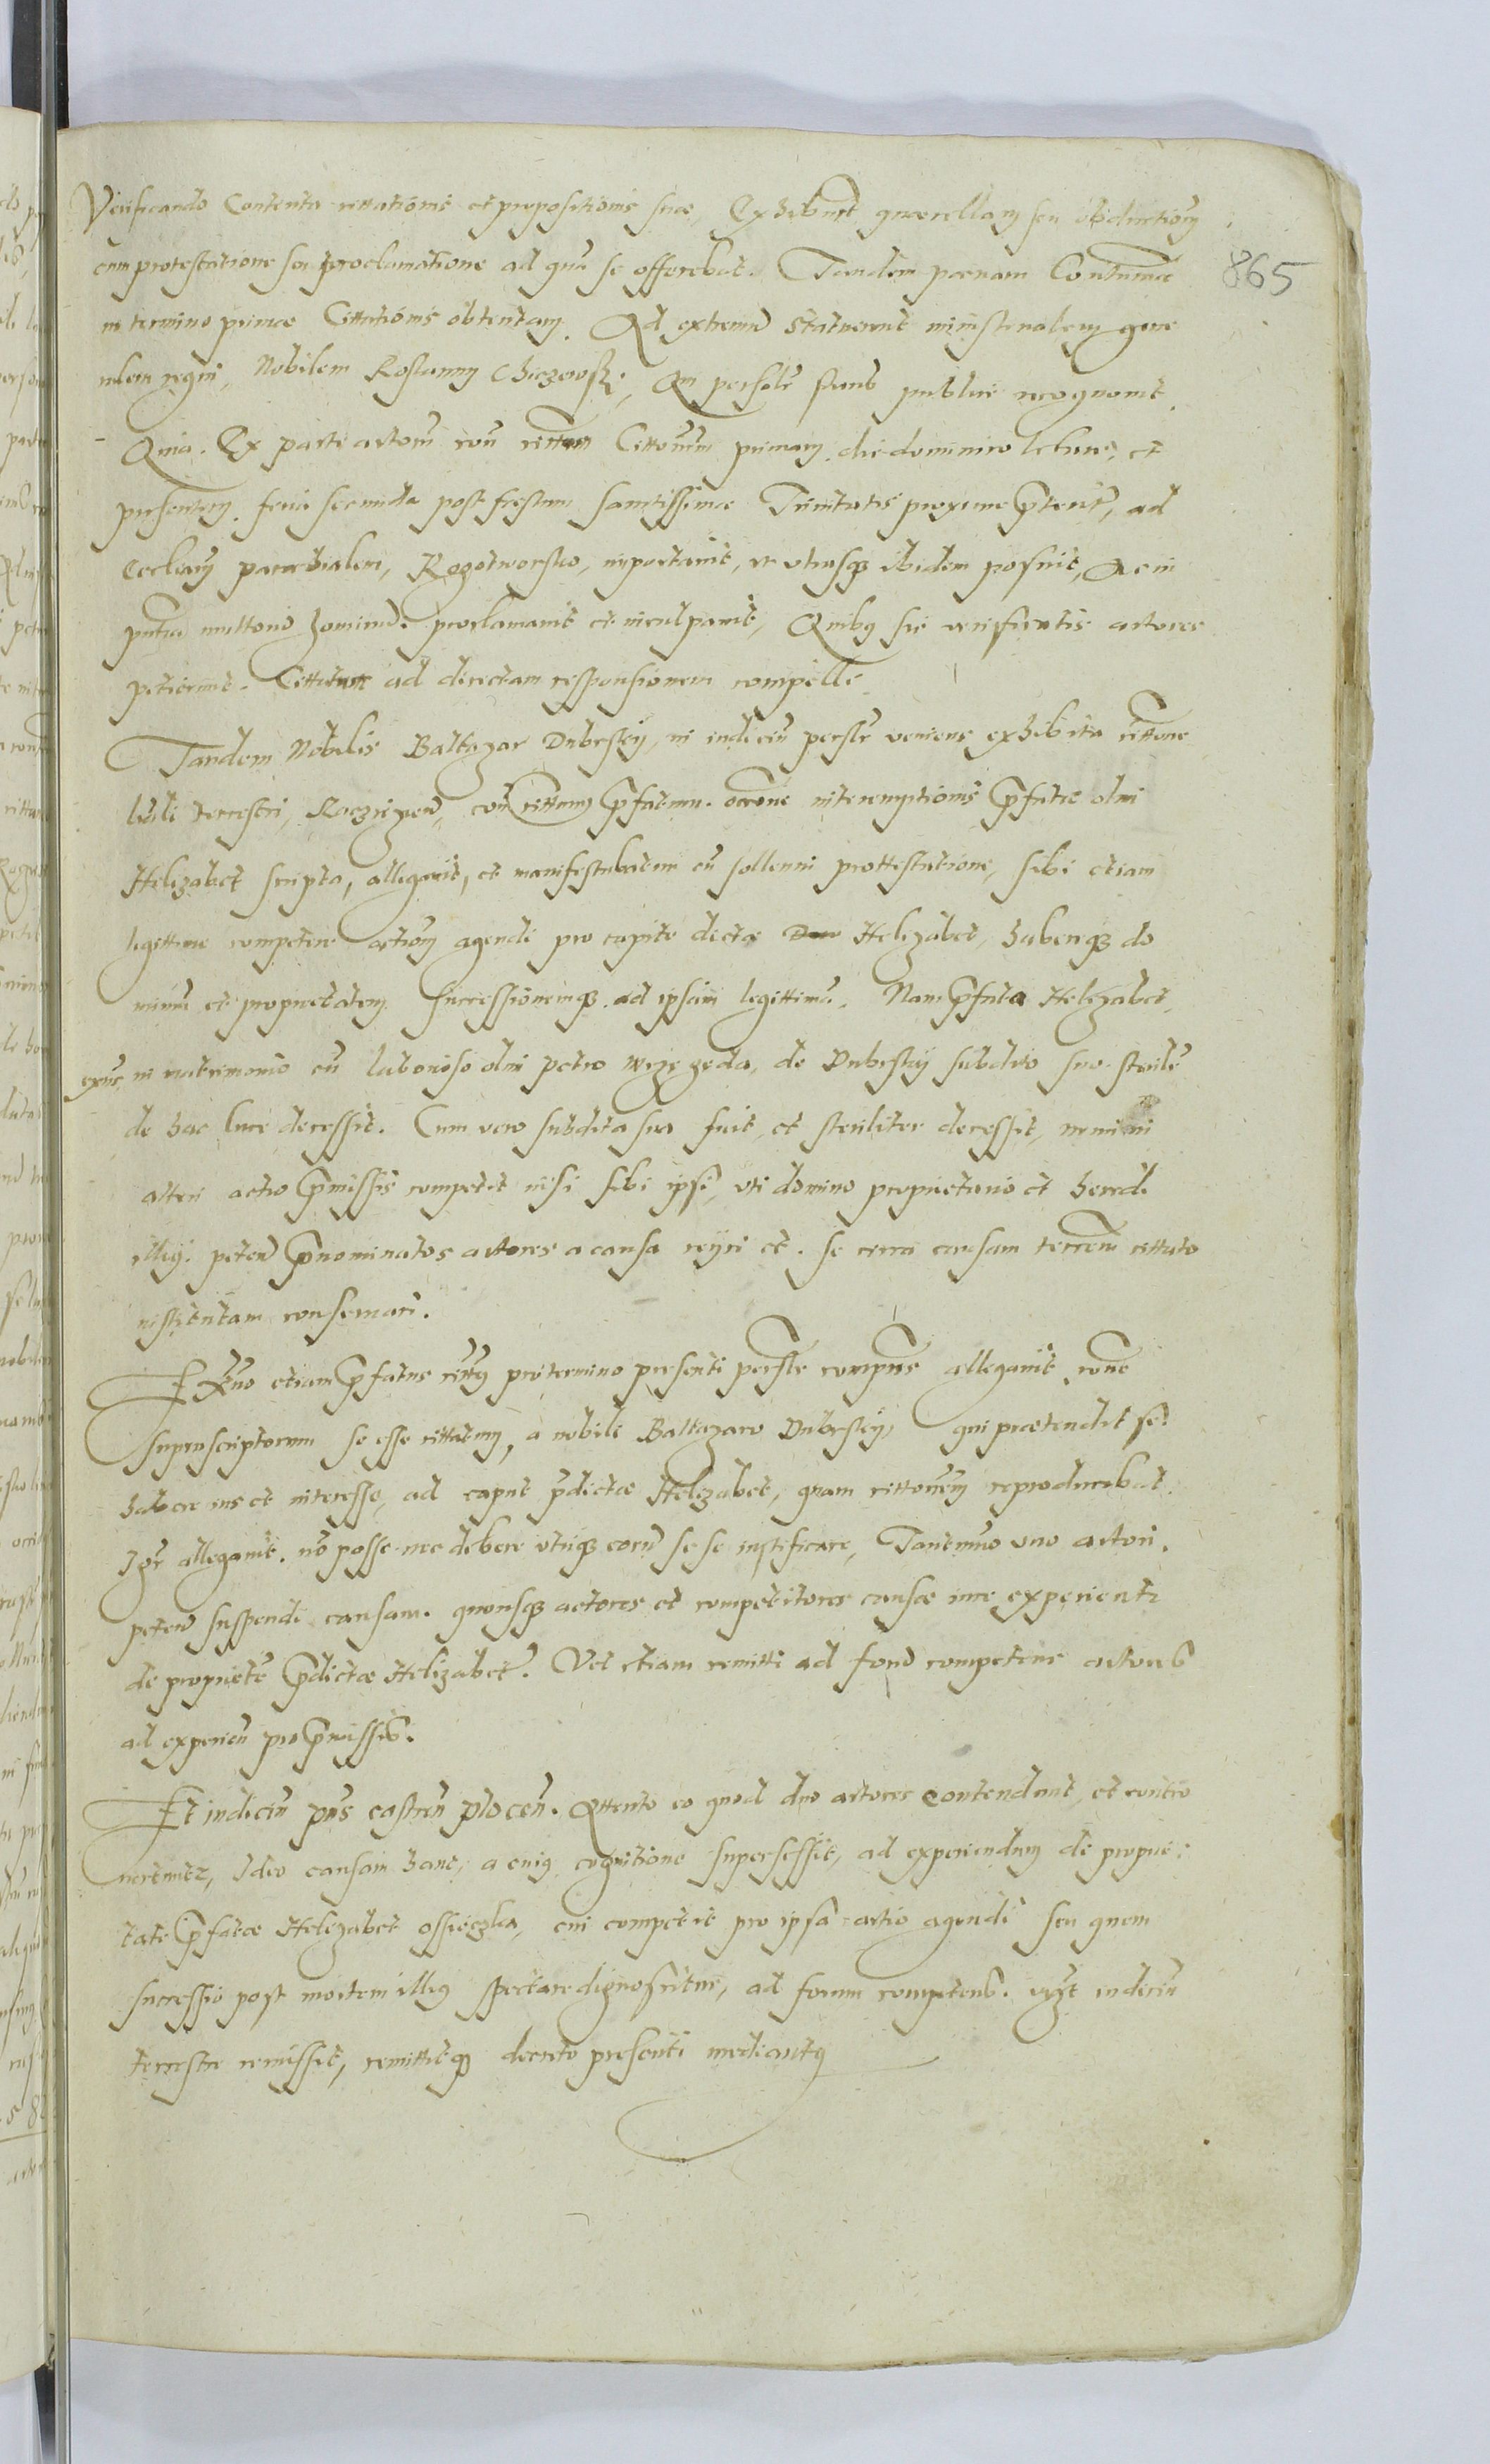 Verificando Contenta cittationis et propositionis suae, Exhibuert quaerellam seu obductionem
cum protestatione seu proclamatione ad qua se offerebat. Tandem poenam Contumac
in termino primae Cittationis obtentam. Ad extremu statuerunt ministerialem gene
ralem regni, Nobilem
Quia. Ex parte actorum con cittatum Cittonem primam, die dominico et
presentem, feria secunda post festum sanctissimae Trinitatis proxime pterit, ad
Eccleam parochialem, Rogotworsko, importavit, et utrasq ibidem posuit, Ac in
pntia multorum hominu. proclamavit et inculpavit, Quibq sic verificatis actores
petierunt. Cittatum ad directam responsionem compelli
Tandem Nobilis Baltazar Dubrskij, in iudiciu persolr veniens exhibita cittone
terrestri, con cittatum pfatum. occone interemptionis pfatae olim
Helizabet scripta, allegavit, et manifestabatur cu sollenni prottestatione, sibi etiam
legittime competere actionem agendi pro capite dictae Helizabet, habereq do
minium et proprietatem successionemq. ad ipsam legittima. Nam pfata Helizabet,
exns in matrimonio cu laborioso olim petro de Dubrskij subdito suo sterile
de hac luce decessit. Cum vero subdita sua fuit, et steriliter decessit, nemini
alteri actio pmissis competit nisi sibi ipsi, uti domino proprietario et heredi
illiq. peten pnominatos actores a causa reijci et. se circa causam terrem cittato
institutam conservari.
Ex quo etiam pfatus cittatq pro termino presenti persolr compns allegavit, rone
supra scriptorum se esse cittatum, a nobili Baltazaro Dubrskij, qui praetendit se
habere ius et interesse, ad caput pdictae Helizabet, quam cittonem reproducebat.
Igr allegavit. no posse nec debere utriq eoru se se iustificare, Tantumo uno actori.
peten suspendi causam. quousq actores et competitores causae iure experientr
de propriete pdictae Helizabet. Vel etiam remitti ad foru competens actorib
ad experien pro pmissis.
Et iudiciu pns castren plocen. Attento eo quod duo actores contendunt, et contro
vertuntr, Ideo causam hanc, a cuiq cognitione supersessit, ad experiendum de proprie:
tate pfatae Helizabet ossieczka, cui competit pro ipsa actio agendi seu quem
successio post mortem illiq spectare dignoscitur, ad forum competens. vizt iudiciu
terrestre remissit, remittitq decreto presenti mediante
865